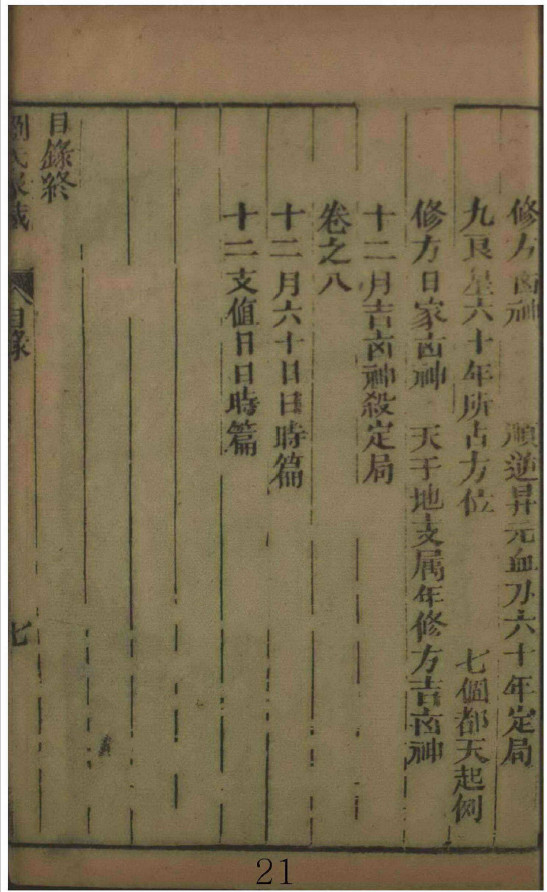 修方凶神　順逆昇元血刃六十年定局
九艮星六十年所占方位　七個都天起例
修方日家凶神　天干地支属年修方吉凶神
十二月吉凶神殺定局
卷之八
十二月六十日日時篇
十二支值日日時篇
目錄終
劉氏家藏　目錄　七
21